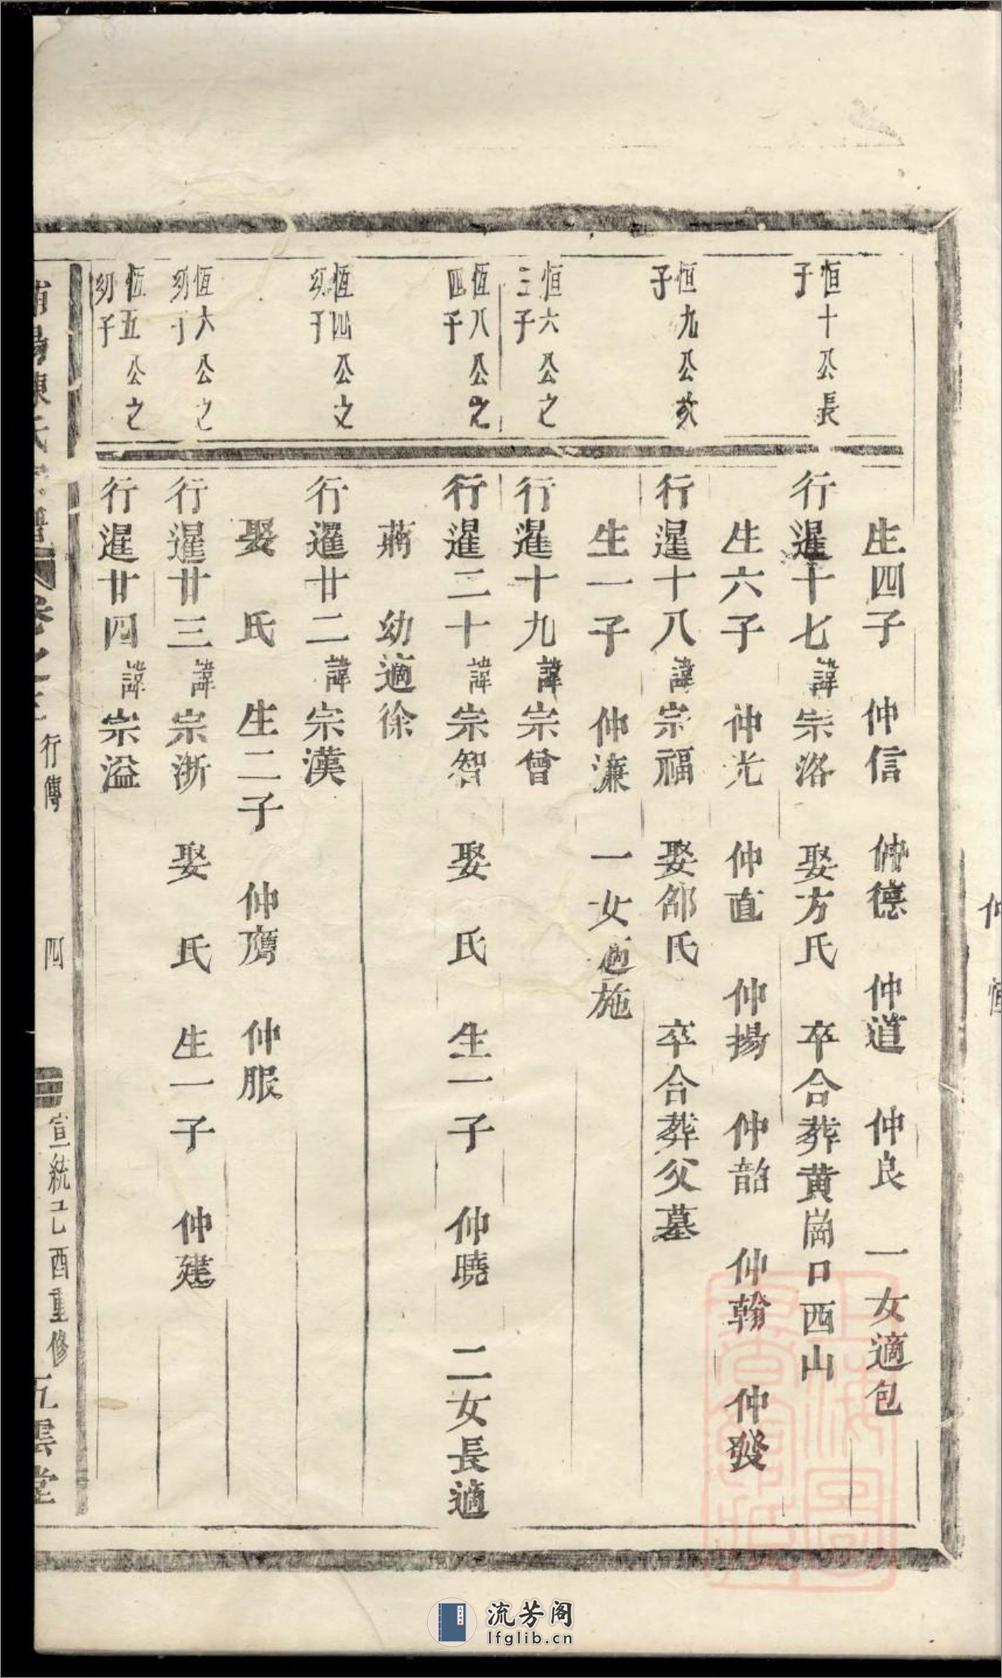 生四子 仲信 仲德 仲道 仲良 一女適包
恒十公長子
行暹十七諱宗洛 娶方氏 卒合葬黄崗口西山
生六子 仲光 仲直 仲揚 仲韶 仲翰 仲發
恒九公次子
行暹十八諱宗福 娶邵氏 卒合葬父墓
生一子 仲濂 一女適施
恒六公之三子
行暹十九諱宗曾
恆八公之四子
行暹二十諱宗智 娶 氏 生一子 仲曉 二女長適
蔣 幼適徐
恆四公之幼子
行暹廿二諱宗漢
娶 氏 生二子 仲膺 仲服
恆六公之幼子
行暹廿三諱宗浙 娶 氏 生一子 仲建
恆五公之幼子
行暹廿四諱宗溢
陳氏 譜 卷之 行傳 四 宣統己酉重修 五雲堂
流芳阁
lfglib.cn